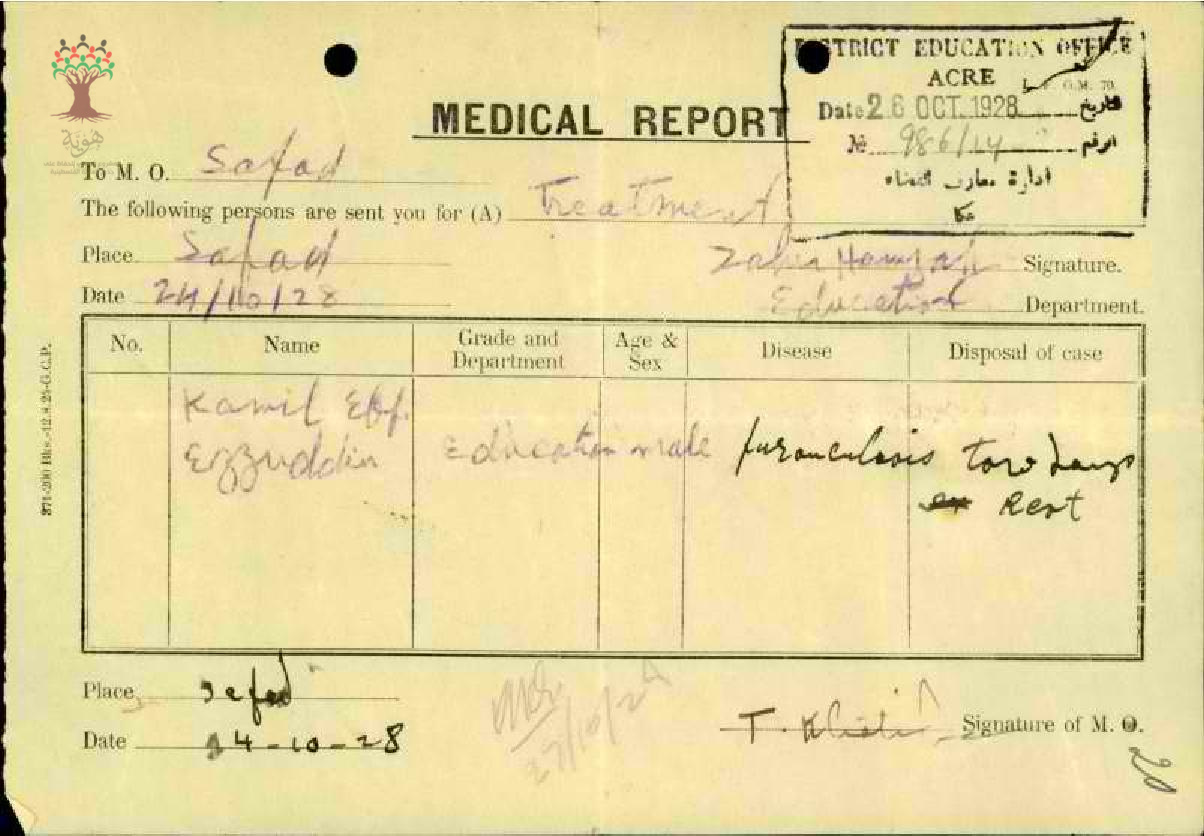 DISTRICT EDUCATION OFFICE
ACRE
G.M. 70.
Date 26 OCT. 1928 تاريخ
№ 986/14 الرقم
ادارة معارف القضاء
عكا
MEDICAL REPORT
هَوِيَّة
To M. O. Safad
The following persons are sent you for (A) Treatment
Place Safad
Signature.
Date 24/10/28
Education Department.
No. Name Grade and Department Age & Sex Disease Disposal of case
Kamil Eff. Ezzuddin Education male furonculosis tow days
Rest
371-200 Bks.-12.8.25-G.C.P.
Place Safed
Date 24-10-28
27/10/28
Signature of M. O.
20